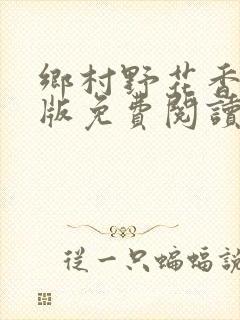 鄉村野花香
版免費閱讀
從一只蝙蝠說